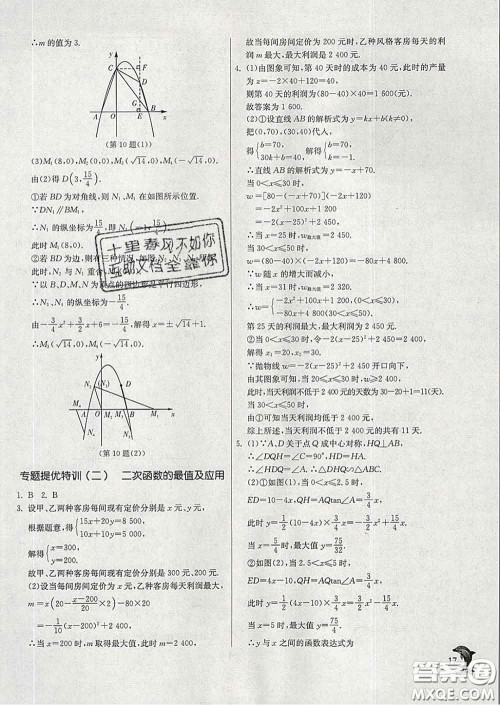 ∴m 的值为 3.
(第 10 题(1))
(3)M₁(8,0),M₂(√14,0),M₃(-√14,0).
由(2)得 D(3,15/4).
①若 BD 为对角线,则 N₁、M₁ 在如图所示位置.
∵DN₁∥BM₁,
∴N₁ 的纵坐标为
此时 M₁(8,0).
∴N₂、N₃ 的纵坐标为-15/4.
由-3/4x²+3/2x+6=-15/4,解得 x=±√14+1.
此时 M₂(√14,0),M₃(-√14,0).
(第 10 题(2))
专题提优特训(二) 二次函数的最值及应用
1. B 2. B
3. 设甲、乙两种客房每间现有定价分别是 x 元、y 元,
根据题意,得{15x+20y=8 500, 10x+10y=5 000.
解得{x=300, y=200.
故甲、乙两种客房每间现有定价分别是 300 元、200 元.
(2)设当每间房间定价为 x 元,乙种客房每天利润最大,
m=x(20-(x-200)/20×2)-80×20
=-1/10(x-200)²+2 400,
∴当 x=200 时,m 取得最大值,此时 m最大值=2 400,
故当每间房间定价为 200 元时,乙种风格客房每天的利
润 m 最大,最大利润是 2 400 元.
4. (1)由图象可知,第 40 天时的成本为 40 元,此时的产量
为 z=-2×40+120=40,
则第 40 天的利润为(80-40)×40=1 600(元).
故答案为 1 600.
(2)①设直线 AB 的解析式为 y=kx+b(k≠0),
把(0,70),(30,40)代入,
得{b=70, 30k+b=40. 解得{b=70, k=-1.
∴直线 AB 的解析式为 y=-x+70.
当 0<x≤30 时,
w=[80-(-x+70)](-2x+120)
=-2x²+100x+1200
=-2(x-25)²+2450,
∴当 x=25 时,w最大值=2 450.
当 30<x≤50 时,
w=(80-40)×(-2x+120)=-80x+4800,
∵w 随 x 的增大而减小,
∴当 x=31 时,w最大值=2 320.
∴w={-2x²+100x+1200,(0<x≤30) -80x+4800,(30<x≤50)
第 25 天的利润最大,最大利润为 2 450 元.
②当 0<x≤30 时,令-2(x-25)²+2 450=2 400,
解得 x₁=20,x₂=30.
∵抛物线 w=-2(x-25)²+2 450 开口向下,
由其图象可知,当 20≤x≤30 时,w≥2 400,
此时,当天利润不低于 2 400 元的天数为 30-20+1=11(天).
当 30<x≤50 时,
由①可知当天利润均低于 2 400 元.
综上所述,当天利润不低于 2 400 元的共有 11 天.
5. (1)∵A、D 关于点 Q 成中心对称,HQ⊥AB,
∴∠HQD=∠C=90°,HD=HA.
∴∠HDQ=∠A.∴△DHQ∽△ABC.
(2)①如图(1),当 0<x≤2.5 时,
ED=10-4x,QH=AQtan∠A=3/4x,
此时 y=1/2(10-4x)×3/4x=-3/2x²+15/4x.
当 x=5/4时,最大值 y=75/32;
②如图(2),当 2.5<x≤5 时,
ED=4x-10,QH=AQtan∠A=3/4x,
此时 y=1/2(4x-10)×3/4x=3/2x²-15/4x.
∴当 x=5 时,最大值 y=75/4.
∴y 与 x 之间的函数表达式为
17
十里春风不如你
答案圈
MXQE.COM